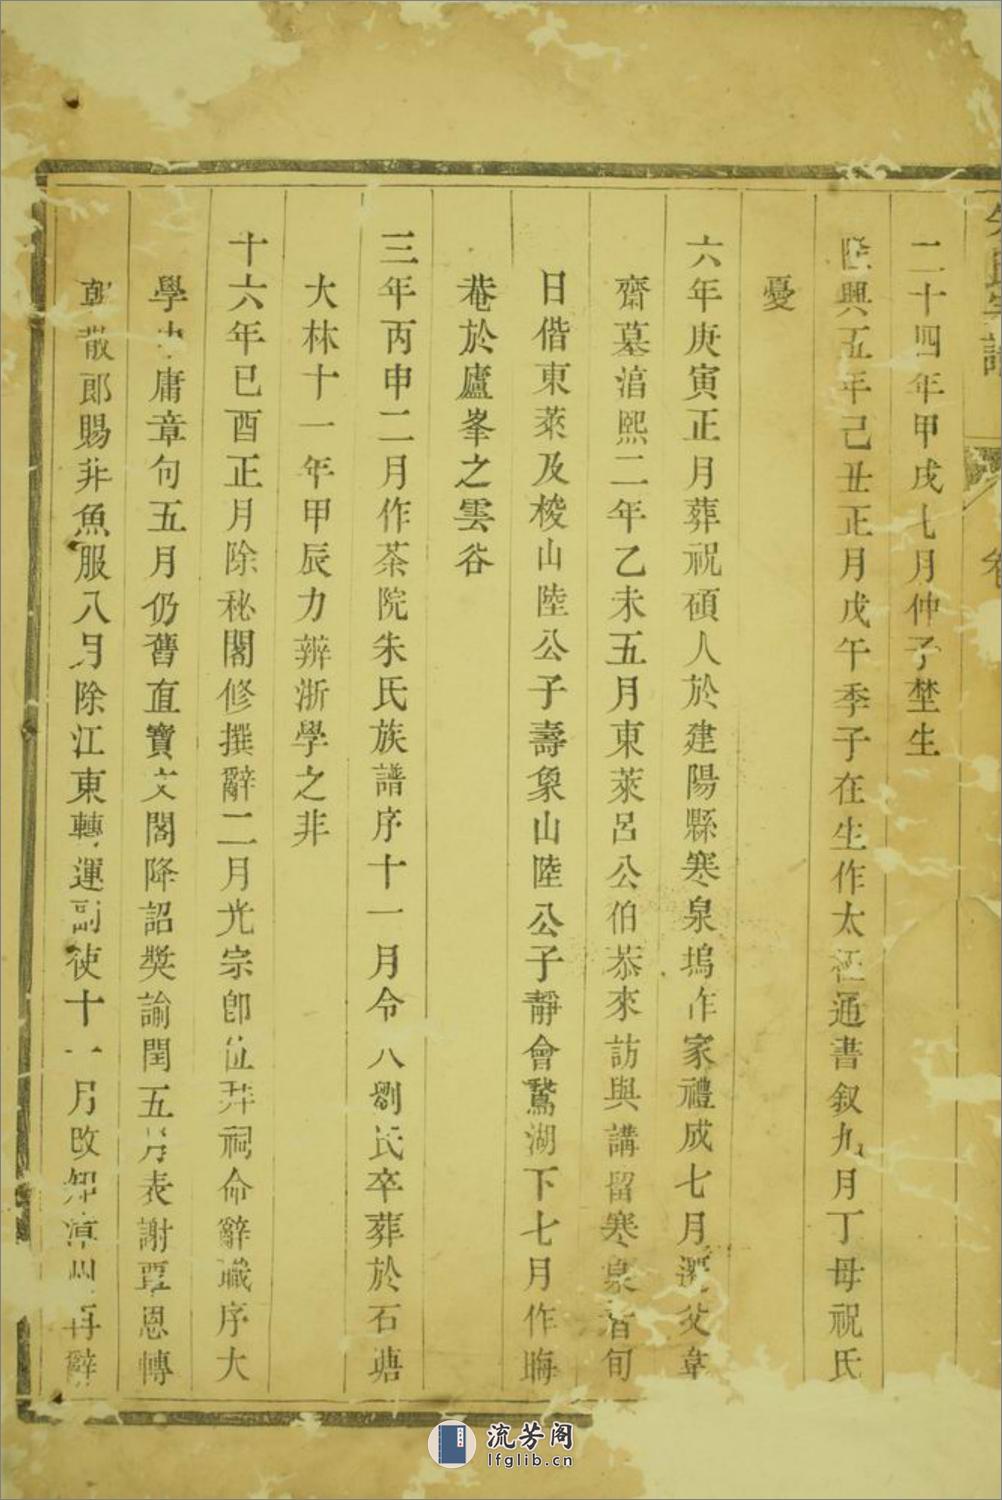 朱氏宗譜 卷
二十四年甲戌七月仲子埜生
隆興五年己丑正月戊午季子在生作太極通書叙九月丁母祝氏
憂
六年庚寅正月葬祝碩人於建陽縣寒泉塢作家禮成七月遷父韋
齋墓淳熙二年乙未五月東萊呂公伯恭來訪與講留寒泉浯旬
日偕東萊及梭山陸公子壽象山陸公子靜會鵞湖下七月作晦
菴於廬峯之雲谷
三年丙申二月作茶院朱氏族譜序十一月令人劉氏卒葬於石塘
大林十一年甲辰力辨浙學之非
十六年已酉正月除秘閣修撰辭二月光宗卽位拜祠命辭職序大
學中庸章句五月仍舊直寶文閣降詔獎諭閏五月表謝覃恩轉
朝散郎賜緋魚服八月除江東轉運副使十一月改知漳州再辭
流芳阁
lfglib.cn